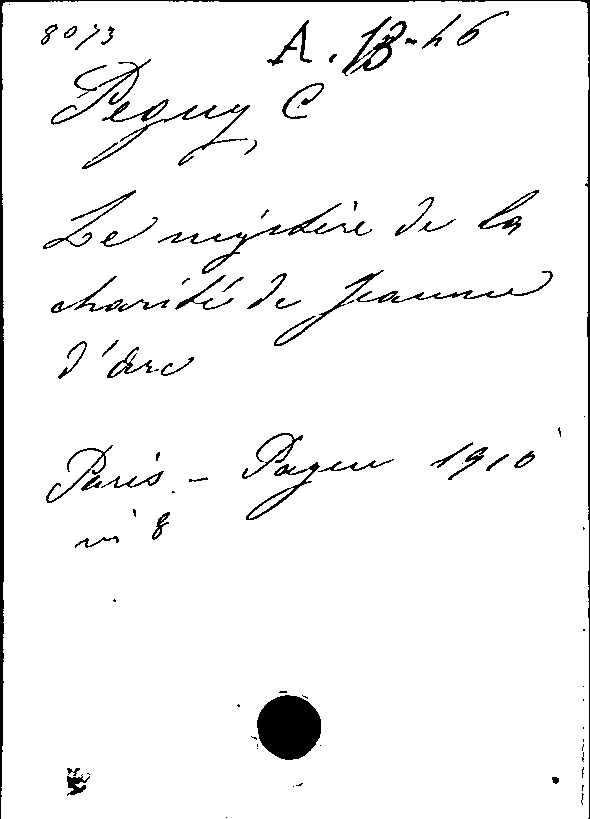 8073
A. B-h 6
Peguy, C
Le mystère de la
charité de Jeanne
d'Arc
Paris - Payen 1910
in 8